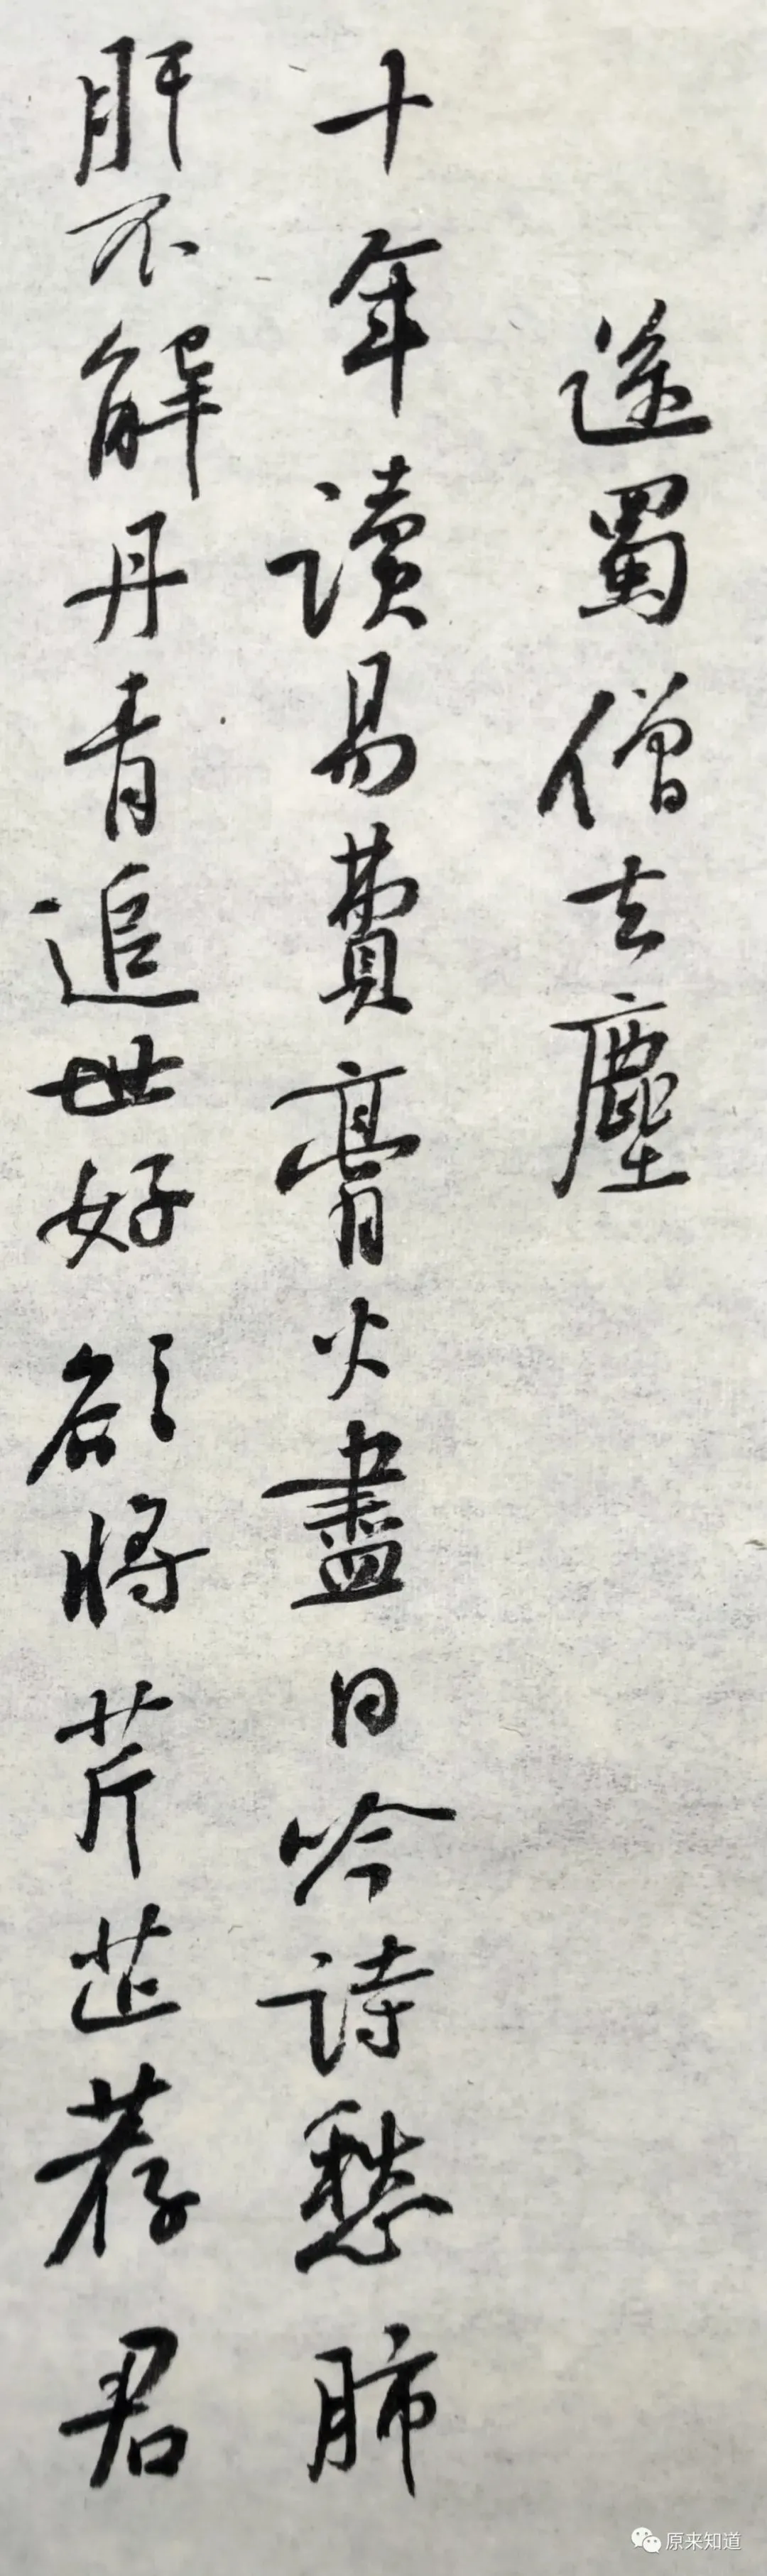 送蜀僧去塵
十年讀易費膏火盡日吟詩愁肺
肝不解丹青追世好欲將芹芷荐君
原来知道